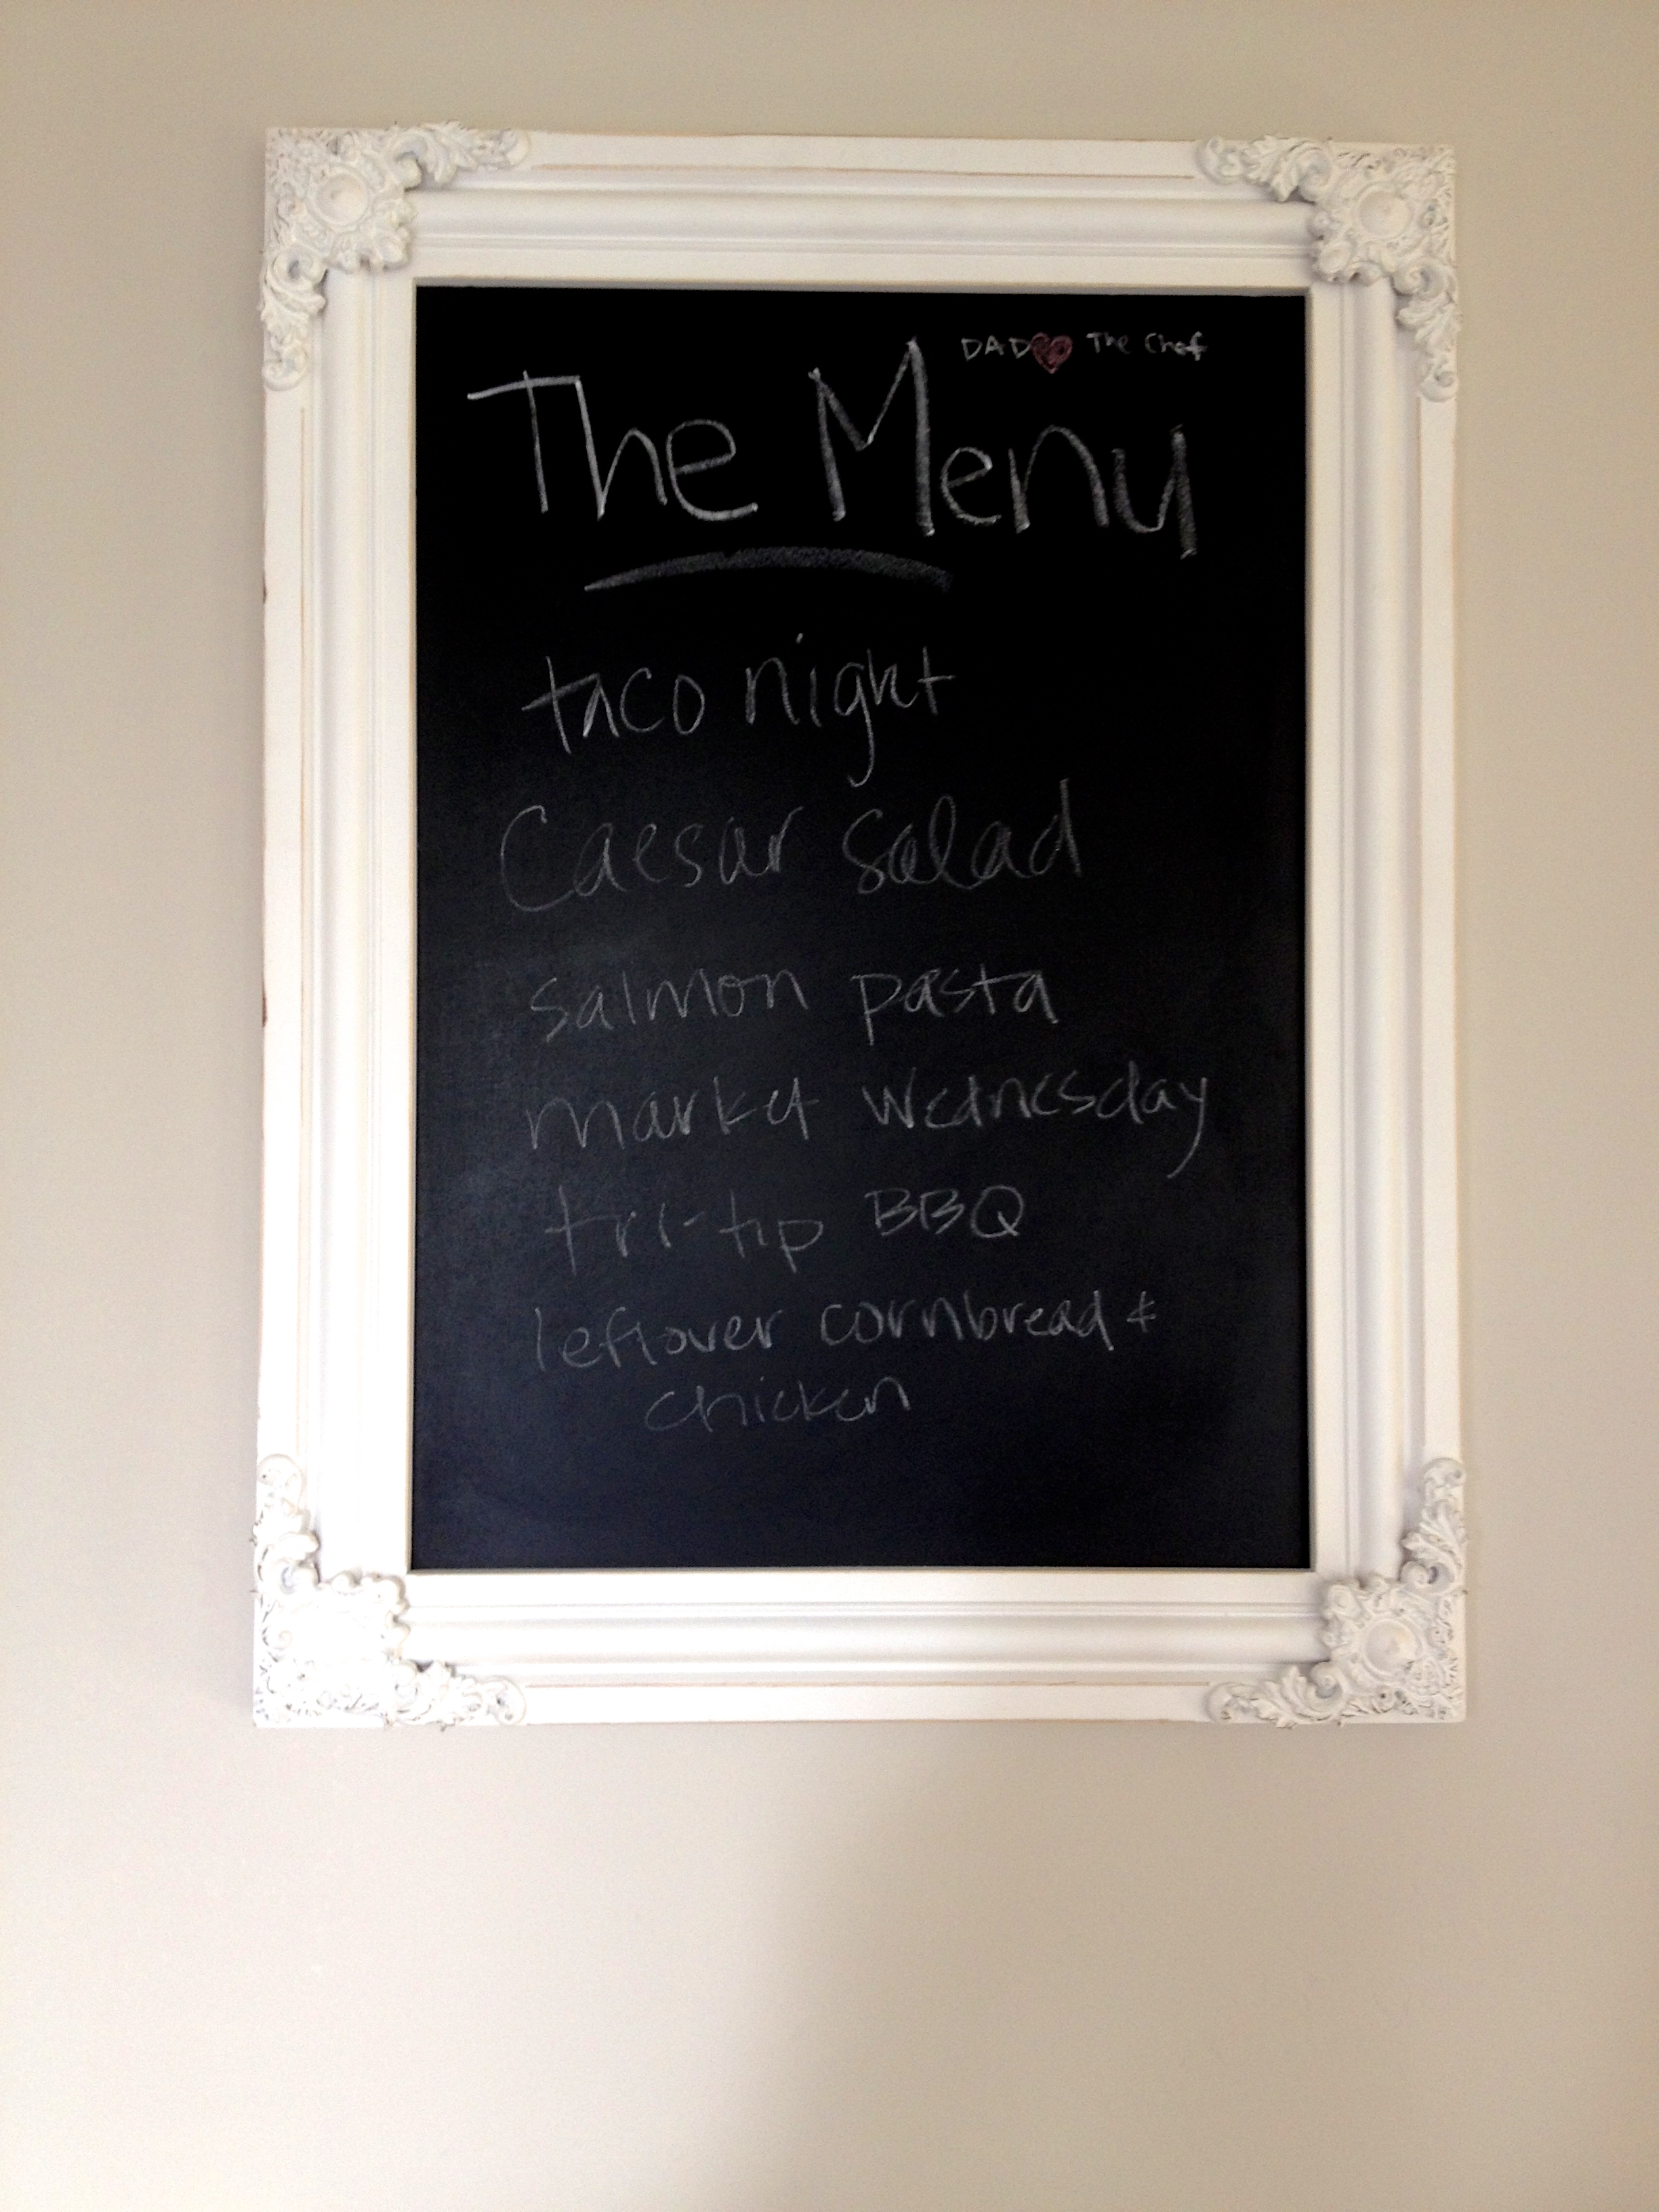 DAD ❤ The Chef
The Menu
taco night
Caesar salad
salmon pasta
market wednesday
tri-tip BBQ
leftover cornbread &
chicken